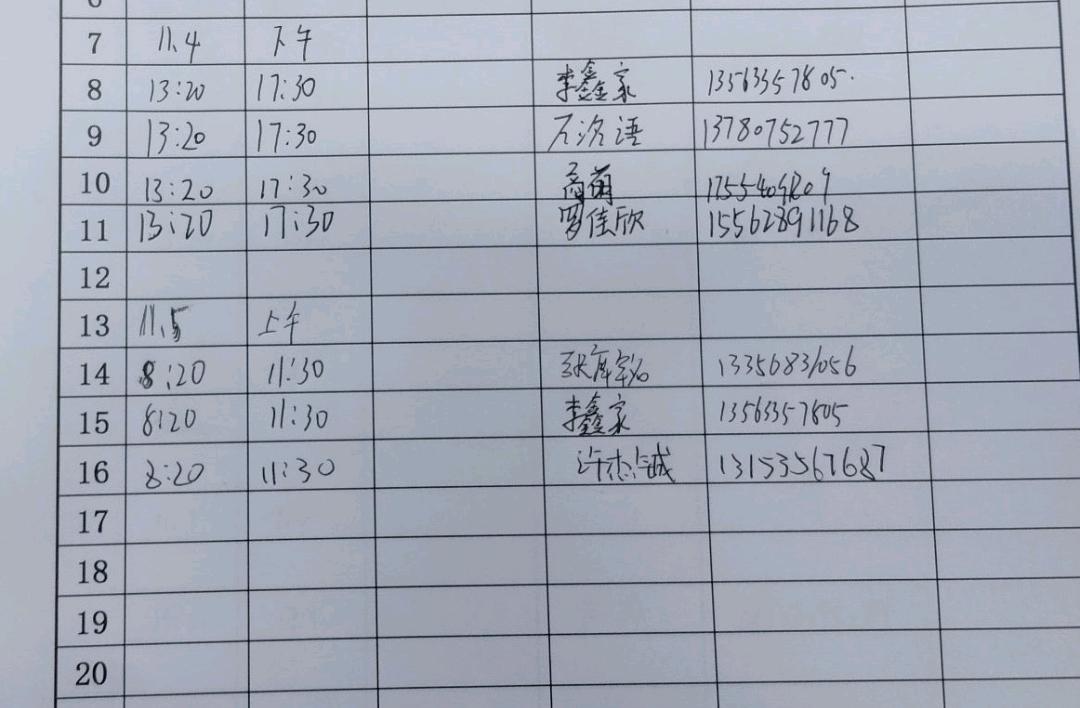 7 11.4 下午
8 13:20 17:30 李鑫家 13563357805
9 13:20 17:30 13780752777
10 13:20 17:30 高萌
11 13:20 17:30 罗佳欣 15562891168
12
13 11.5 上午
14 8:20 11:30 13356831056
15 8:20 11:30 李鑫家 13563357805
16 8:20 11:30 许杰诚 13153567687
17
18
19
20